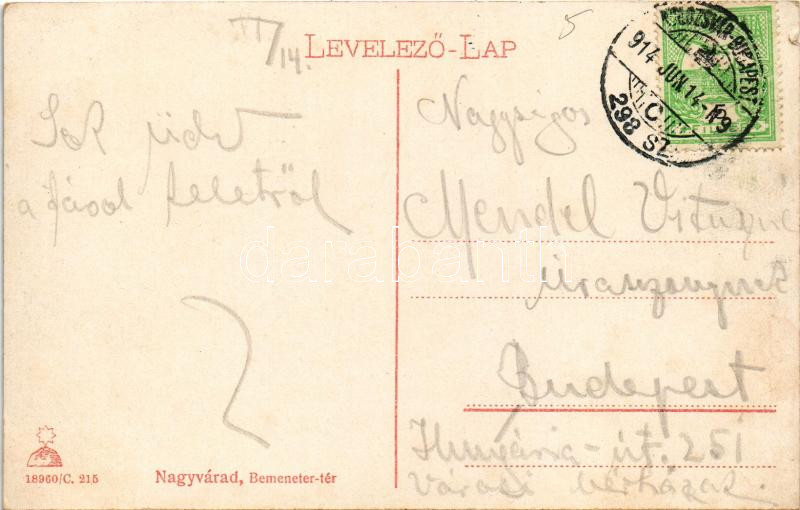 VI/14.
5
LEVELEZŐ-LAP
KOLOZSVÁR-BUDAPEST
914 JUN 14
C
298 SZ.
Sok üdv
a távol keletről
Nagyságos
Mendel Vilmosné
úrasszonynak
Budapest
Hungária-út. 251
Városi bérházak.
darabanth
18960/C. 215
Nagyvárad, Bemeneter-tér